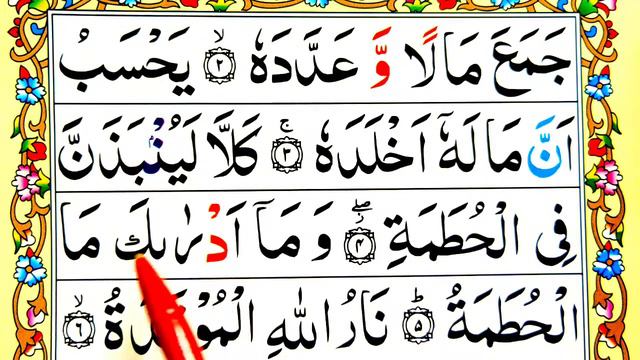 جَمَعَ مَالًا وَّ عَدَّدَهٗ ۙ﴿۲﴾ يَحْسَبُ
اَنَّ مَالَهٗۤ اَخْلَدَهٗ ۚ﴿۳﴾ كَلَّا لَيُنْۢبَذَنَّ
فِى الْحُطَمَةِ ۖ﴿۴﴾ وَ مَاۤ اَدْرٰىكَ مَا
الْحُطَمَةُ ؕ﴿۵﴾ نَارُ اللّٰهِ الْمُوْقَدَةُ ۙ﴿۶﴾